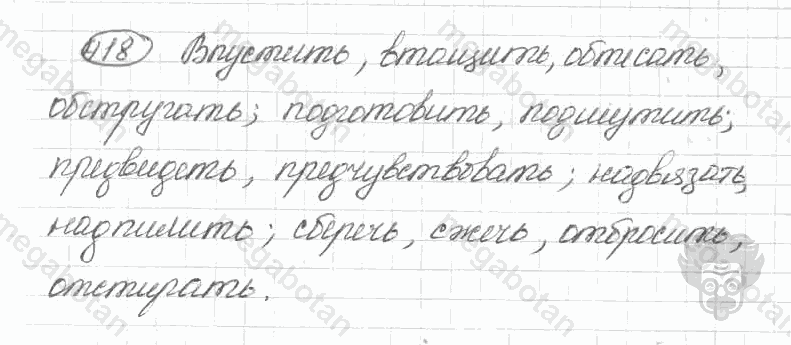 418 Впустить, втащить, обтесать,
обстругать; подготовить, подшутить;
предвидеть, предчувствовать; надвязать,
надпилить; сберечь, сжечь, отбросить,
отстирать.
megabotan